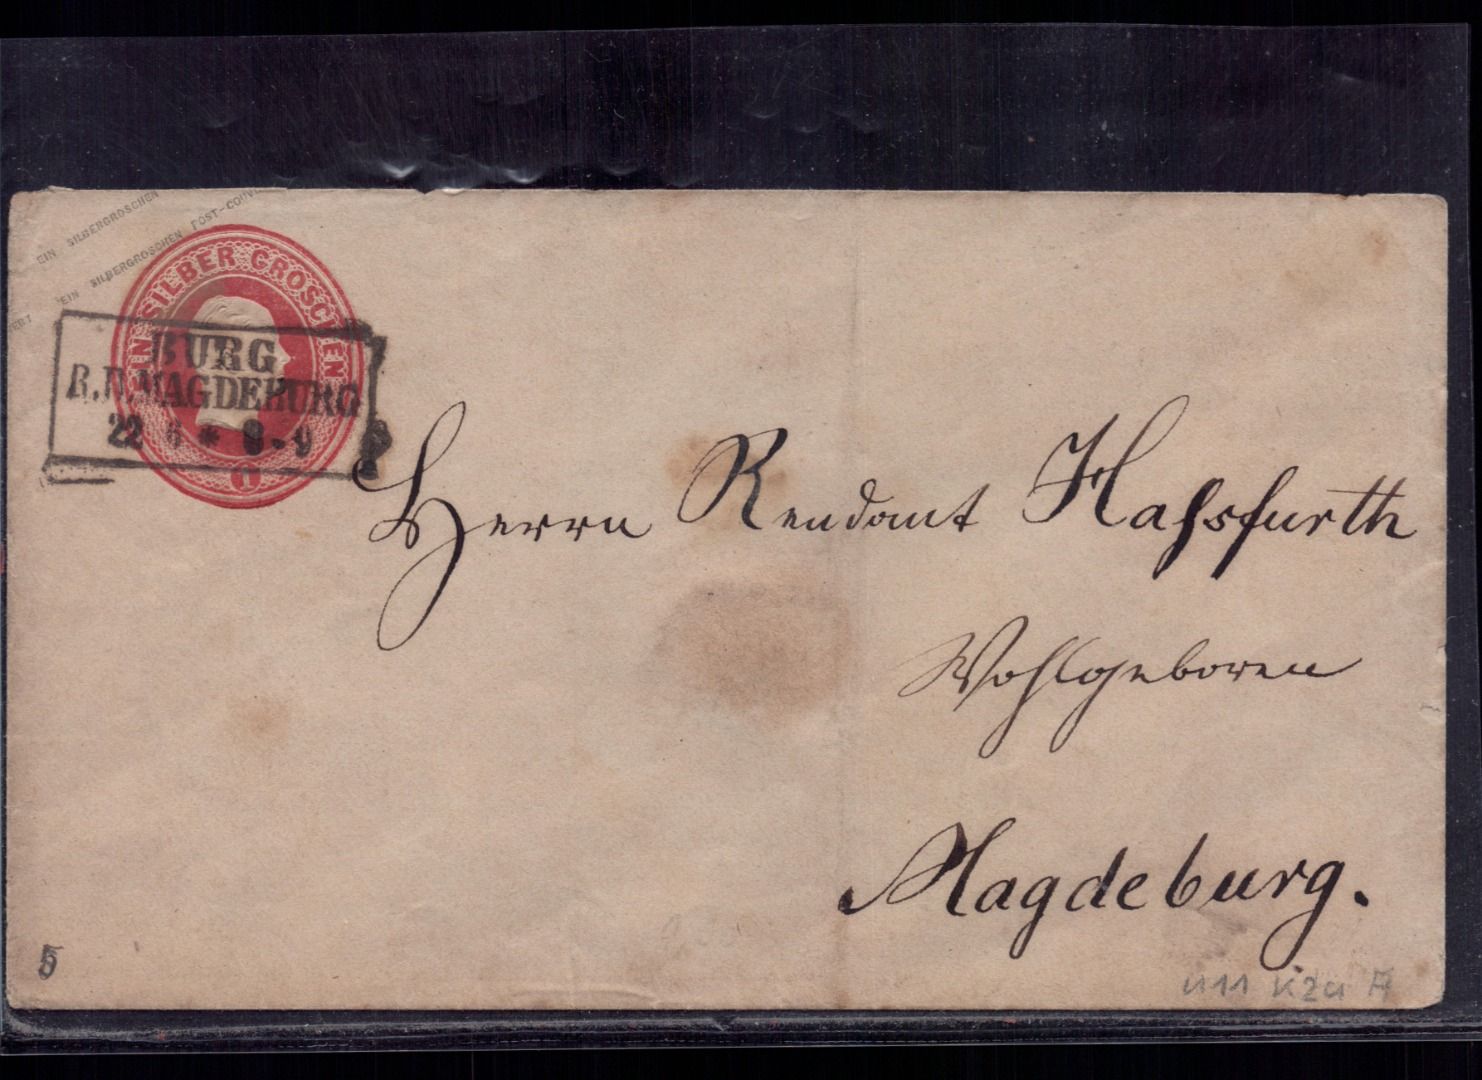 EIN SILBERGROSCHEN
EIN SILBERGROSCHEN POST-COUV
VERT
EIN SILBER GROSCHEN
1
BURG
R.B.MAGDEBURG
22 6 * 8-9
Herrn Rendant Hassfurth
Wohlgeboren
Magdeburg.
5
U11 K2u A